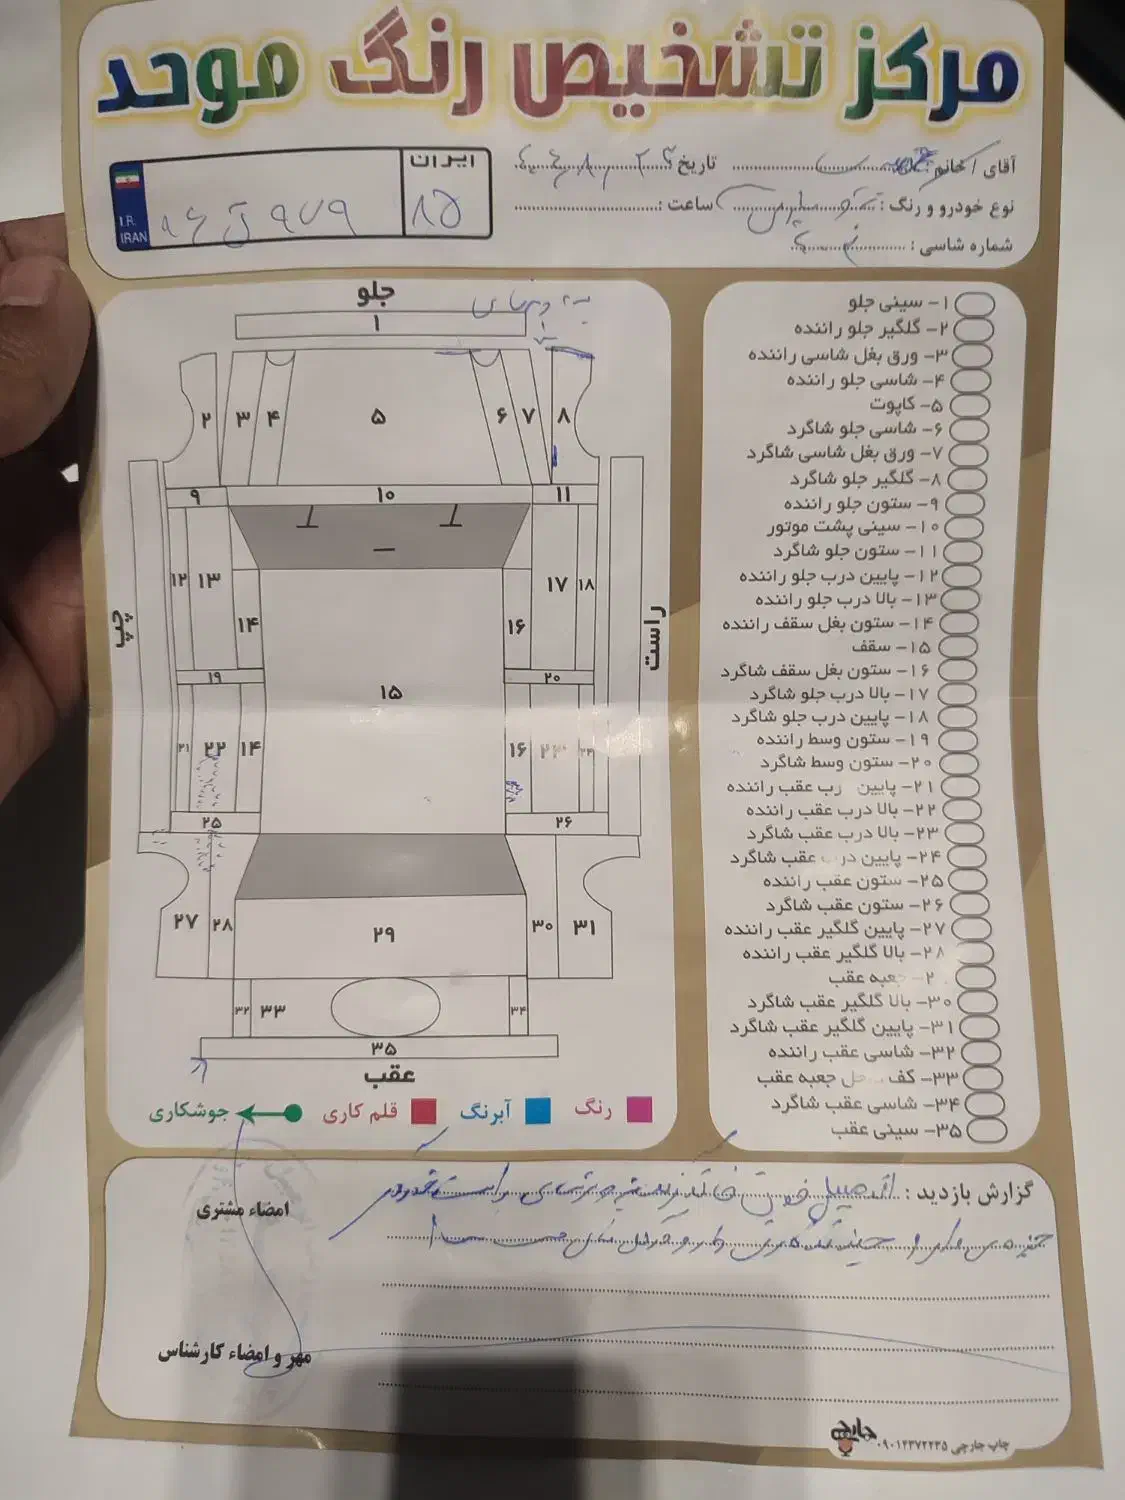 مرکز تشخیص رنگ موحد
آقای / خانم :
تاریخ
نوع خودرو و رنگ :
ساعت :
شماره شاسی :
ایران
۸۵
۹۷۹
I.R.
IRAN
جلو
۱
۲ ۳ ۴ ۵ ۶ ۷ ۸
۹ ۱۰ ۱۱
۱۲ ۱۳ ۱۷ ۱۸
۱۴ ۱۶
چپ
راست
۱۹ ۱۵ ۲۰
۲۱ ۲۲ ۱۴ ۱۶ ۲۳ ۲۴
۲۵ ۲۶
۲۷ ۲۸ ۲۹ ۳۰ ۳۱
۳۲ ۳۳ ۳۴
۳۵
عقب
رنگ
آبرنگ
قلم کاری
جوشکاری
۱- سینی جلو
۲- گلگیر جلو راننده
۳- ورق بغل شاسی راننده
۴- شاسی جلو راننده
۵- کاپوت
۶- شاسی جلو شاگرد
۷- ورق بغل شاسی شاگرد
۸- گلگیر جلو شاگرد
۹- ستون جلو راننده
۱۰- سینی پشت موتور
۱۱- ستون جلو شاگرد
۱۲- پایین درب جلو راننده
۱۳- بالا درب جلو راننده
۱۴- ستون بغل سقف راننده
۱۵- سقف
۱۶- ستون بغل سقف شاگرد
۱۷- بالا درب جلو شاگرد
۱۸- پایین درب جلو شاگرد
۱۹- ستون وسط راننده
۲۰- ستون وسط شاگرد
۲۱- پایین رب عقب راننده
۲۲- بالا درب عقب راننده
۲۳- بالا درب عقب شاگرد
۲۴- پایین درب عقب شاگرد
۲۵- ستون عقب راننده
۲۶- ستون عقب شاگرد
۲۷- پایین گلگیر عقب راننده
۲۸- بالا گلگیر عقب راننده
۲- جعبه عقب
۳۰- بالا گلگیر عقب شاگرد
۳۱- پایین گلگیر عقب شاگرد
۳۲- شاسی عقب راننده
۳۳- کف جعبه عقب
۳۴- شاسی عقب شاگرد
۳۵- سینی عقب
گزارش بازدید :
امضاء مشتری
مهر و امضاء کارشناس
چاپ جارچی ۰۹۰۱۳۳۷۲۲۳۵
جارچی